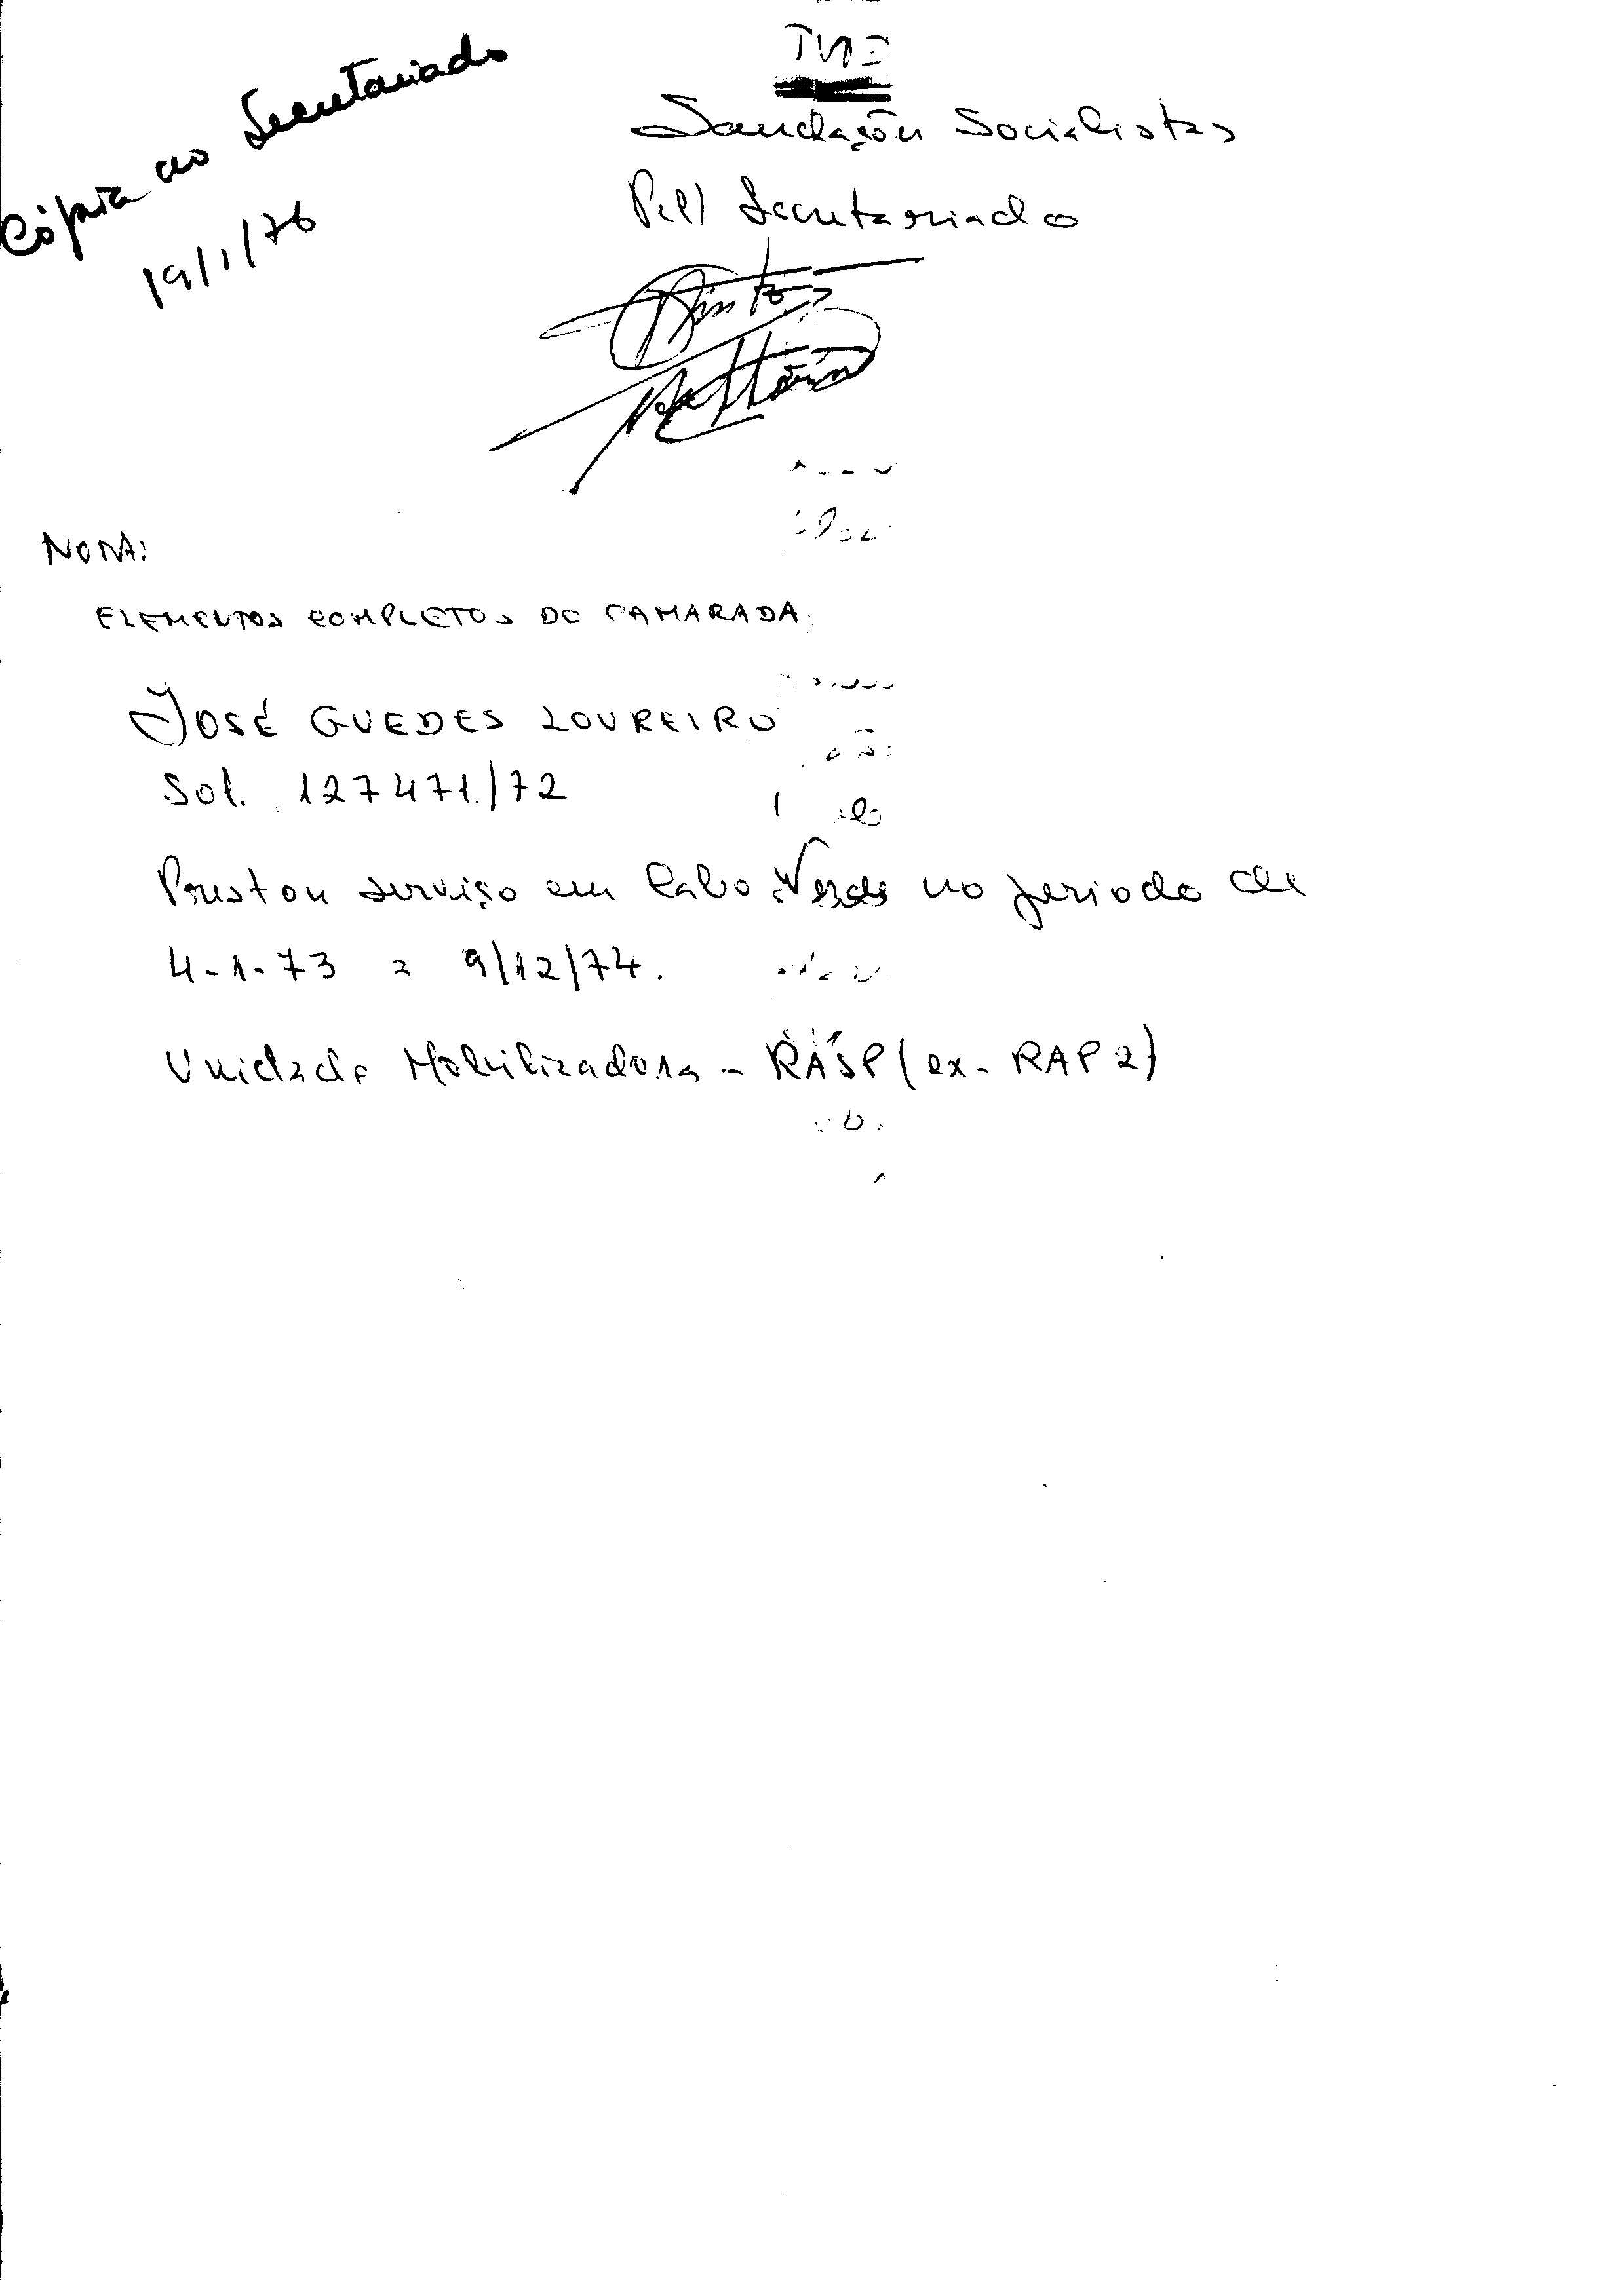 Cópia ao Secretariado
19/1/76
Saudações Socialistas
Pel' Secretariado
NOTA:
ELEMENTOS COMPLETOS DO CAMARADA
JOSÉ GUEDES LOUREIRO
Sol. 127471/72
Prestou serviço em Cabo Verde no período de
4-1-73 a 9/12/74.
Unidade Mobilizadora - RASP (ex-RAP2)